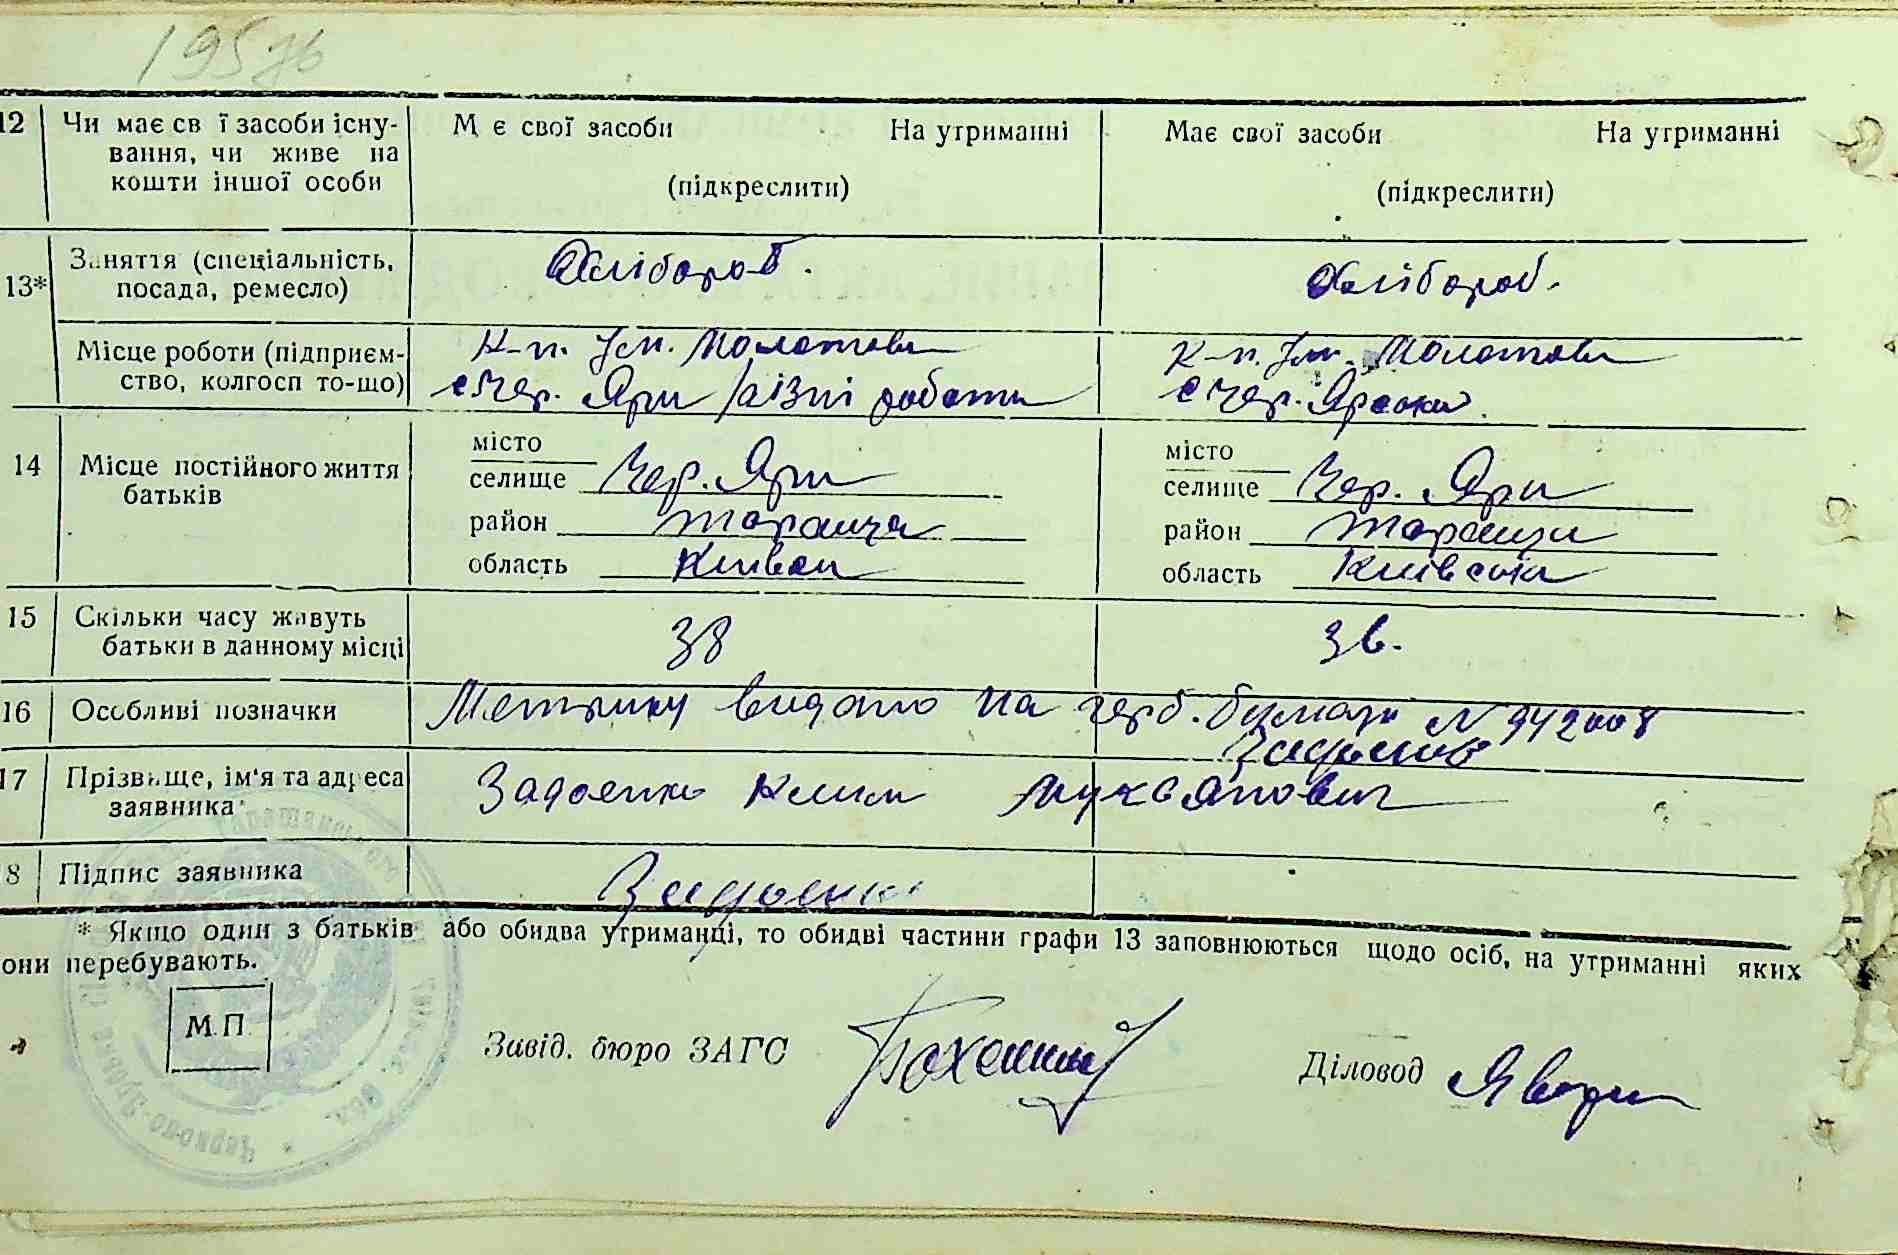 195
12 Чи має св ї засоби існу- М є свої засоби На утриманні Має свої засоби На утриманні
вання, чи живе на
кошти іншої особи (підкреслити) (підкреслити)
13* Заняття (спеціальність, Хлібороб. Хлібороб.
посада, ремесло)
Місце роботи (підприєм- К-п. Ім. Молотова К-п. Ім. Молотова
ство, колгосп то-що) с Чер. Яри різні роботи с Чер. Ярсоки
14 Місце постійного життя місто місто
батьків селище Чер. Яри селище Чер. Яри
район Тараща район Тараща
область Київськ область Київська
15 Скільки часу живуть 38 36.
батьки в данному місці
16 Особливі позначки Метрику видано на герб. бумазі N 942008
17 Прізвище, ім'я та адреса Задоенко Клим Лукьянович
заявника
8 Підпис заявника Задоенко
* Якщо один з батьків або обидва утриманці, то обидві частини графи 13 заповнюються щодо осіб, на утриманні яких
они перебувають.
М.П. Завід. бюро ЗАГС Діловод